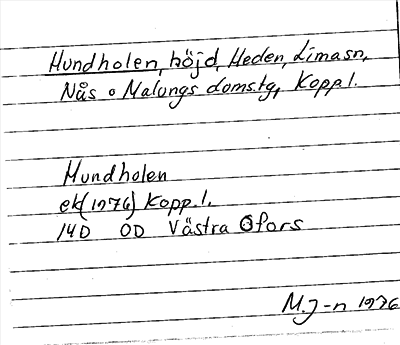 Hundholen, höjd, Heden, Limasn,
Nås o Malungs domstg, Kopp.l.
Hundholen
ek(1976) Kopp.l.
14D OD Västra Ofors
M.J-n 1976